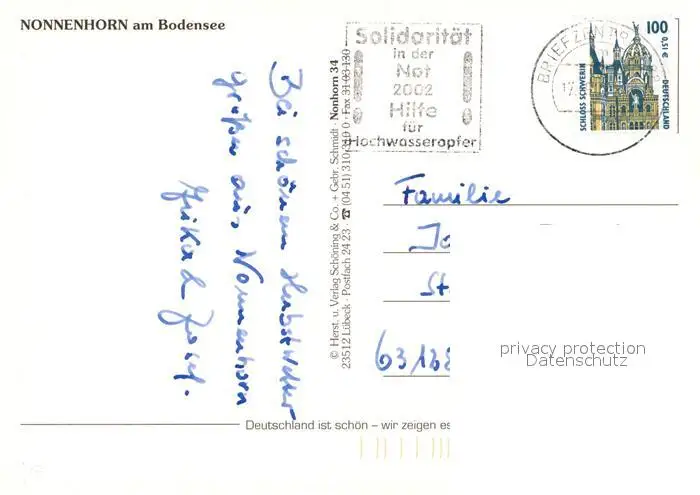 NONNENHORN am Bodensee
Bei schönem Herbstwetter
grüßen aus Nonnenhorn
Josef.
© Herst. u. Verlag Schöning & Co. + Gebr. Schmidt · Nonhorn 34
23512 Lübeck · Postfach 24 23 · ☎ (04 51) 310 310 · Fax 31 03 130
Solidarität
in der
Not
2002
Hilfe
für
Hochwasseropfer
BRIEFZENTR
17
100
0,51 €
SCHLOSS SCHWERIN
DEUTSCHLAND
Familie
Jo
St
privacy protection
Datenschutz
Deutschland ist schön – wir zeigen es